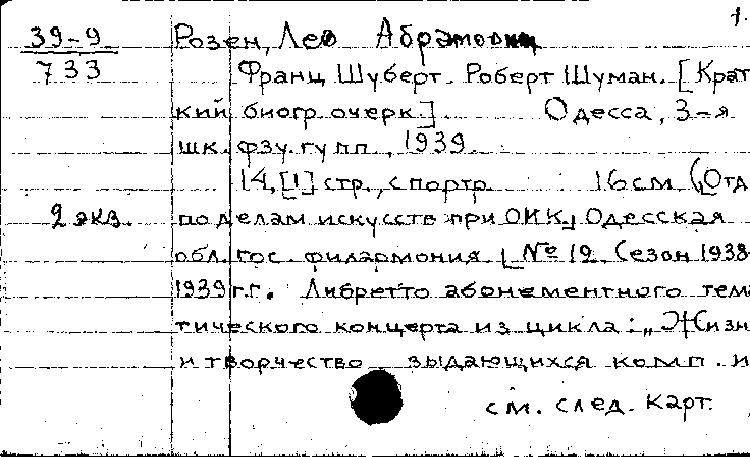 1.
39-9 Розен, Лев Абрамович
733 Франц Шуберт. Роберт Шуман. [Крат
кий биогр. очерк]. Одесса, 3-я
шк. фзу. гупп, 1939.
14, [1] стр., с портр. 16 см. (Отд
2 экз. по делам искусств при ОИК, Одесская
обл. гос. филармония. № 12. Сезон 1938-
1939 г.г. Либретто абонементного тема
тического концерта из цикла: „Жизн
и творчество выдающихся комп. и
см. след. карт.